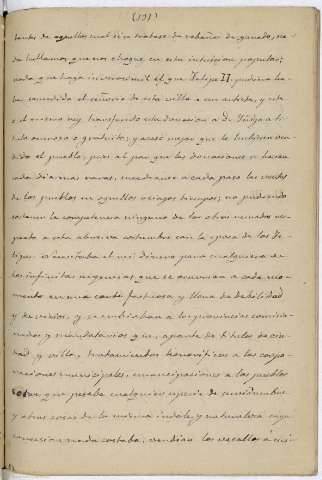 (131)
tantes de aquellos cual si se tratase de rebaños de ganado, na-
da hallamos que nos choque en esta intuicion popular;
nada que haga inverosimil el que Felipe II, pudiera ha-
ber concedido el señorio de esta villa a un artista, y este
ó el nuevo rey transferido esta donacion a de Zuñiga á ti-
tulo oneroso o gratuito; y acaso mejor que le hubiera ven-
dido el pueblo, pues al par que las donaciones se hicieron
cada dia mas raras, encuéntranse a cada paso las ventas
de los pueblos en aquellos aciagos tiempos; no pudiendo
sostener la competencia ninguno de los otros reinados res-
pecto a esta abusiva costumbre con la epoca de los Fe-
lipes. Necesitaba el rei dinero para cualquiera de
las infinitas urgencias que se ocurrian a cada mo-
mento en una corte fastuosa y llena de debilidad
y de vicios, y se embiaban á las provincias comisio-
nados y mandatarios que, aparte de titulos de ciu-
dad, y villa, tratamientos honorificos a las corpo-
raciones municipales, emancipaciones a los pueblos
sobre que pesaba cualquier especie de servidumbre
y otras cosas de la misma indole y naturaleza cuya
concesion nada costaba, vendian los vasallos á